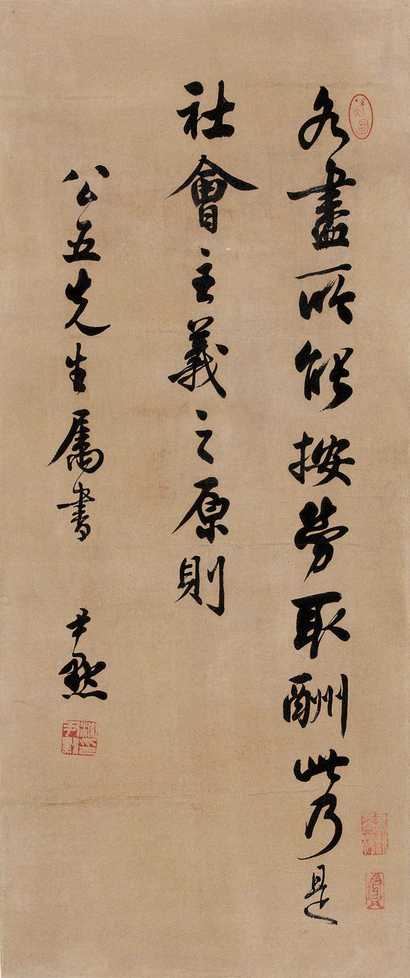 各盡所能按勞取酬此乃是
社會主義之原則
公五先生属書　尹默